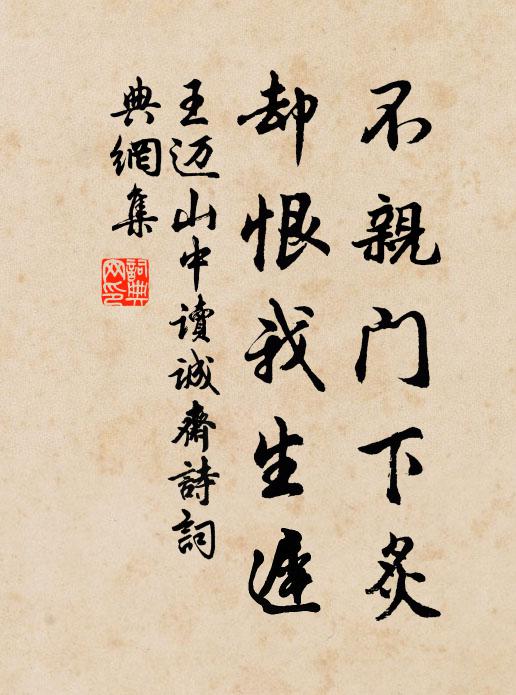 不親門下炙
却恨我生遲
王迈山中讀诚齋詩詞
典網集
詞典
网印